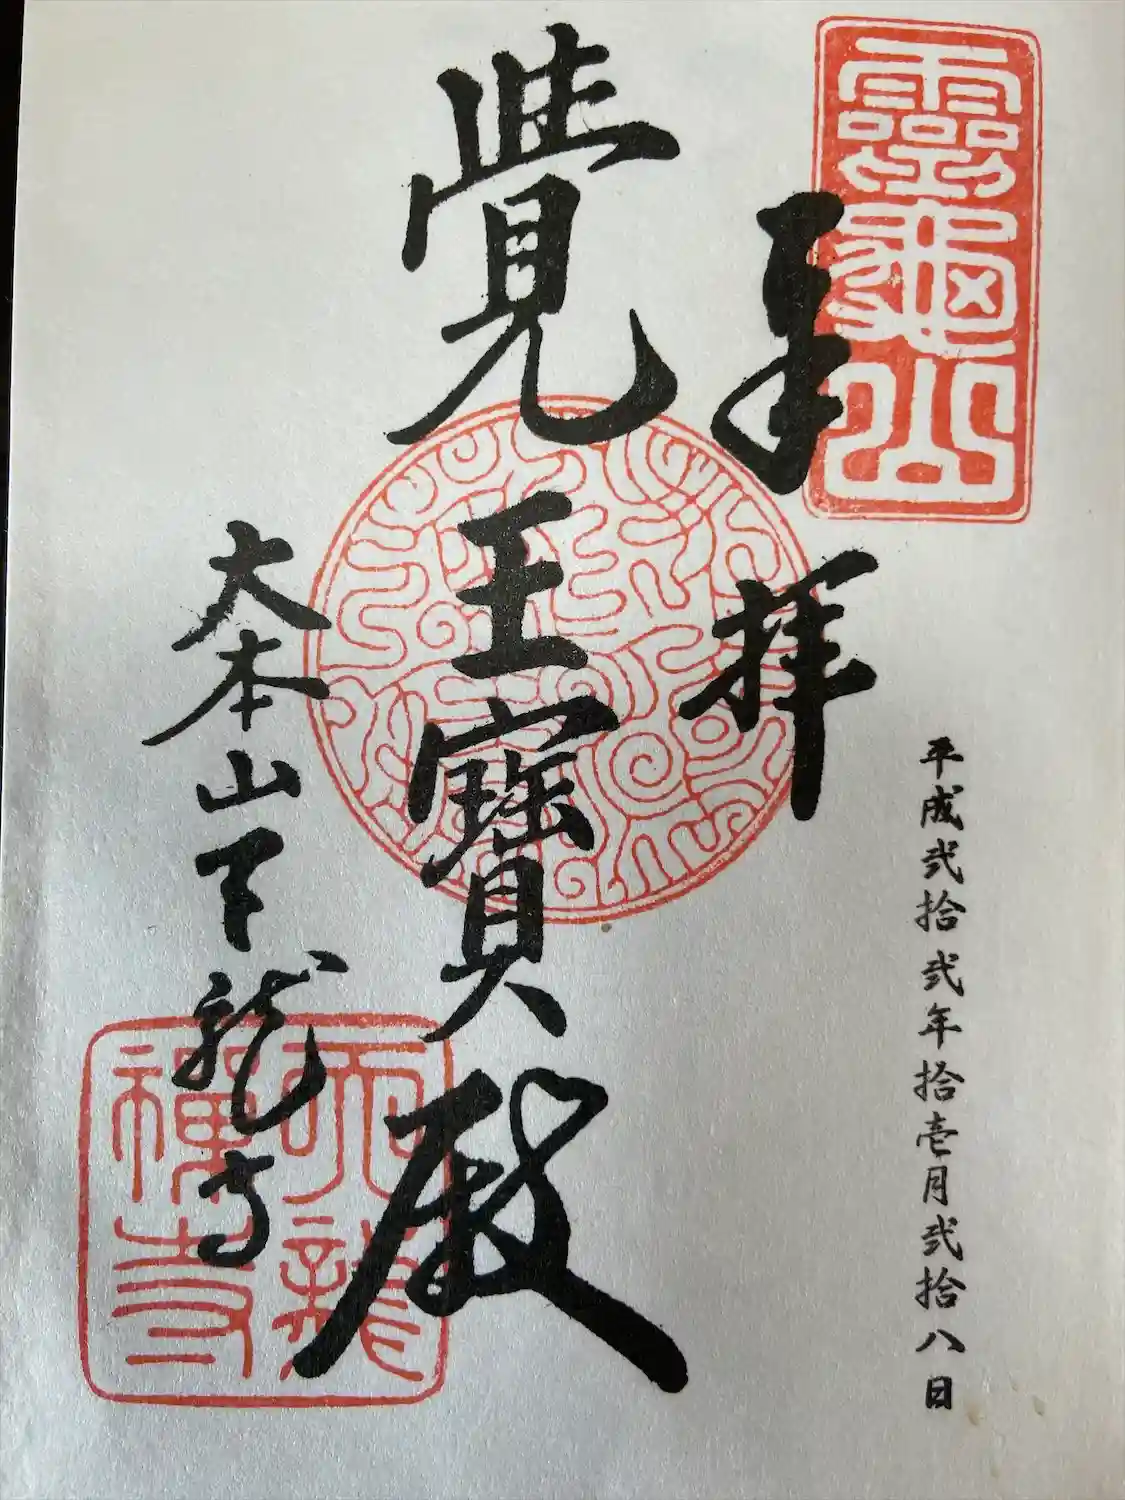 靈龜山
奉拝
平成弐拾弐年拾壱月弐拾八日
覺王寳殿
大本山天龍寺
天龍禅寺